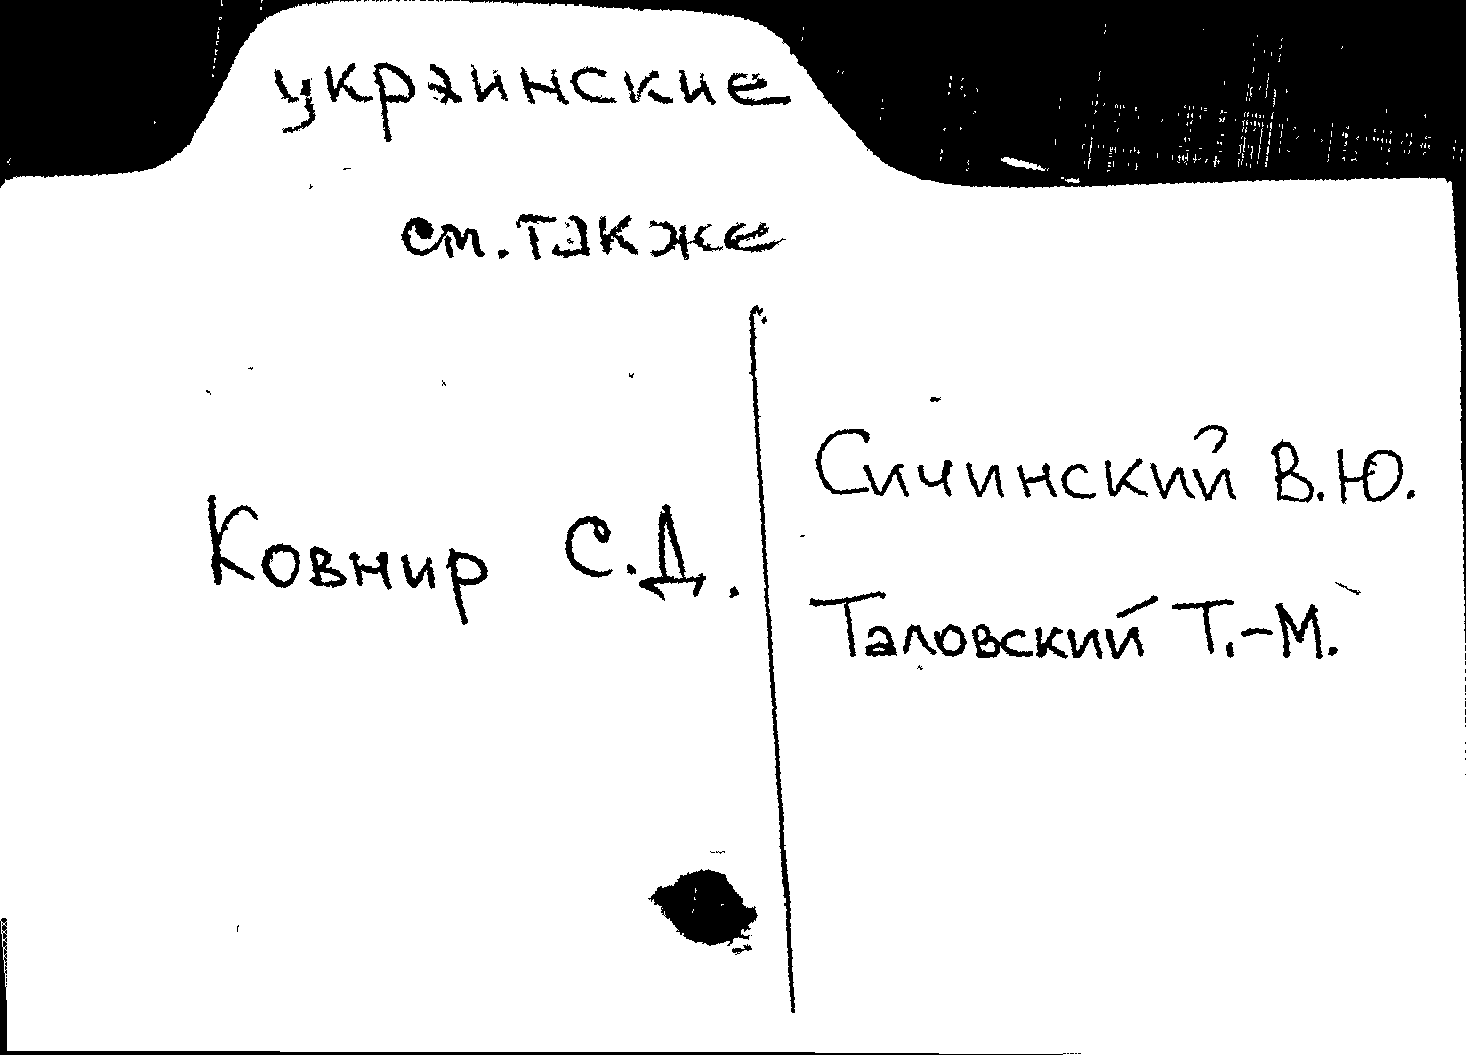 украинские
см. также
Ковнир С.Д.
Сичинский В.Ю.
Таловский Т.-М.